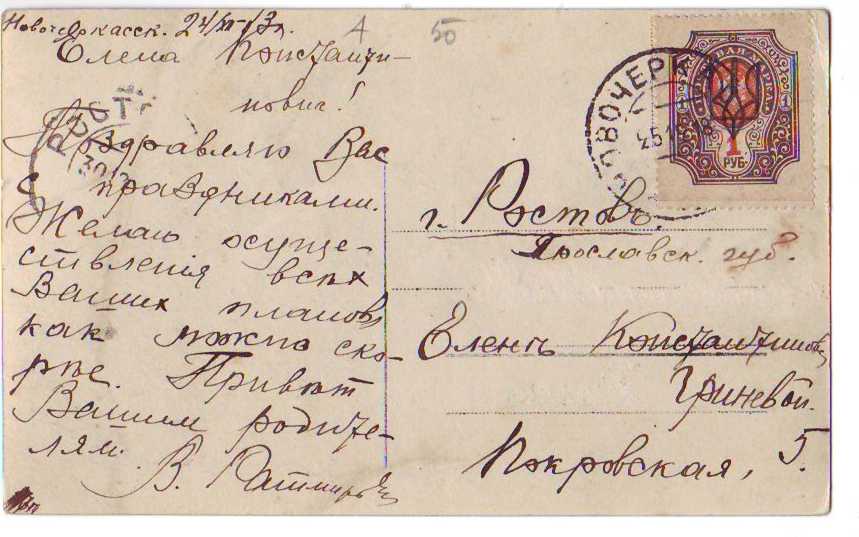 Новочеркасск. 24/XII-13г.
Елена Константи-
новна!
Поздравляю Вас
с праздниками.
Желаю осуще-
ствленія всѣх
Ваших планов
как можно ско-
рѣе. Привѣт
Вашим родите-
лям.
В.
А
50
НОВОЧЕРК
РУБ.
г. Ростовъ.
Ярославск. губ.
Еленѣ Константиновнѣ
Гриневой.
Покровская, 5.